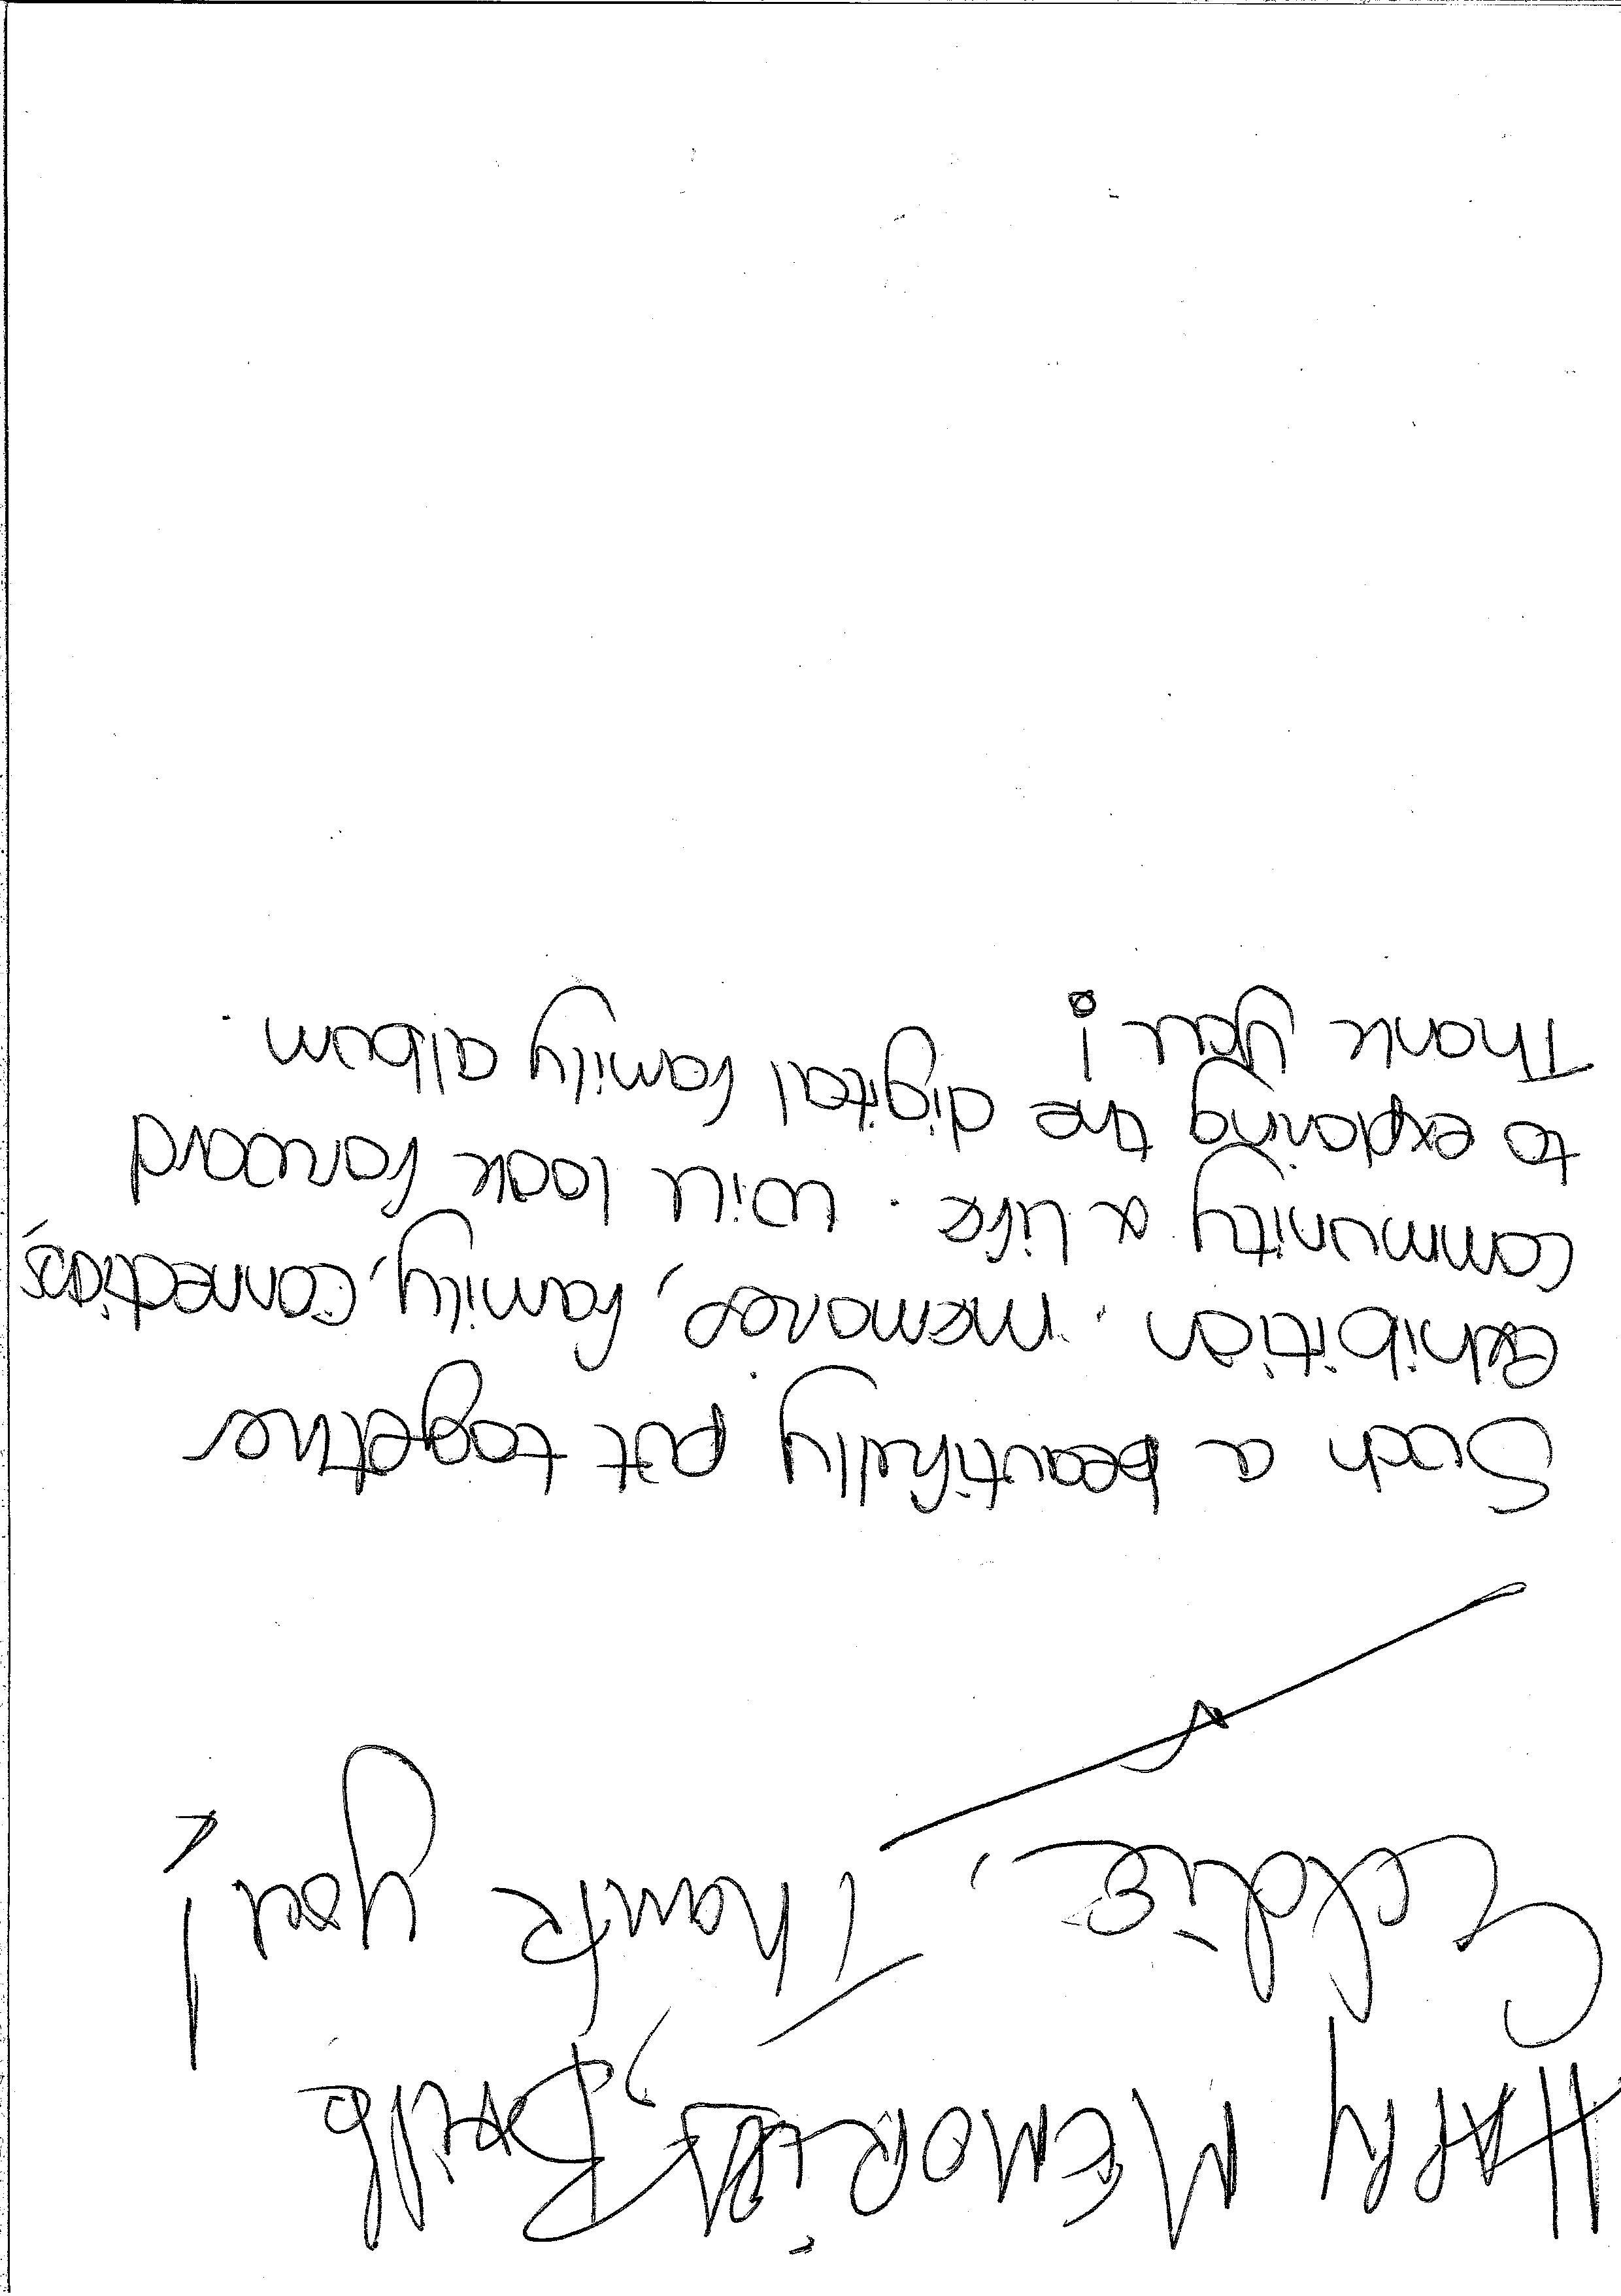 HAPPY MEMORIES,
Thank you!
Such a beautifully put together
exhibition. Memories, family, connections,
community & life. Will look forward
to exploring the digital family album.
Thank you!